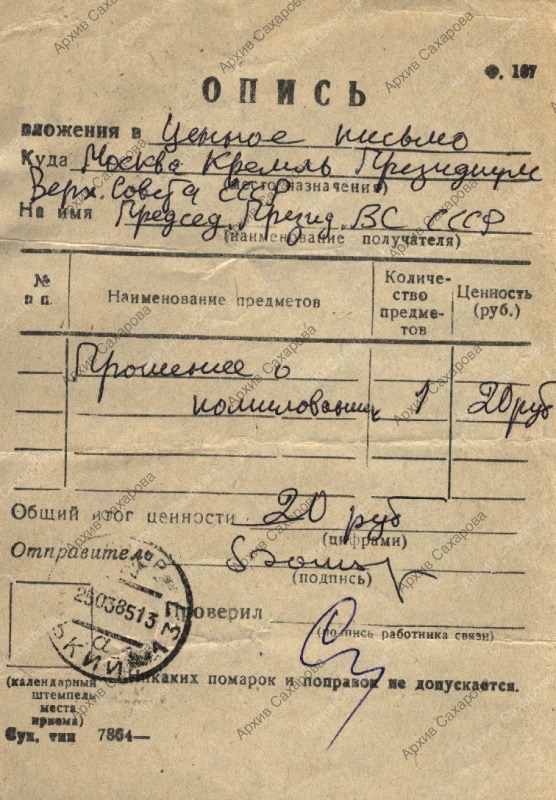 Ф. 107
ОПИСЬ
вложения в Ценное письмо
Куда Москва Кремль Президиум
Верх. Совета СССР
(место назначения)
На имя Председ. Презид. ВС СССР
(наименование получателя)
№ п п. Наименование предметов Количе-ство предме-тов Ценность (руб.)
Прошение о
помиловании 1 20 руб
Общий итог ценности 20 руб
(цифрами)
Отправитель
(подпись)
25038513
Проверил
(подпись работника связи)
(календарный штемпель места приема)
никаких помарок и поправок не допускается.
Сук. тип 7864—
Архив Сахарова